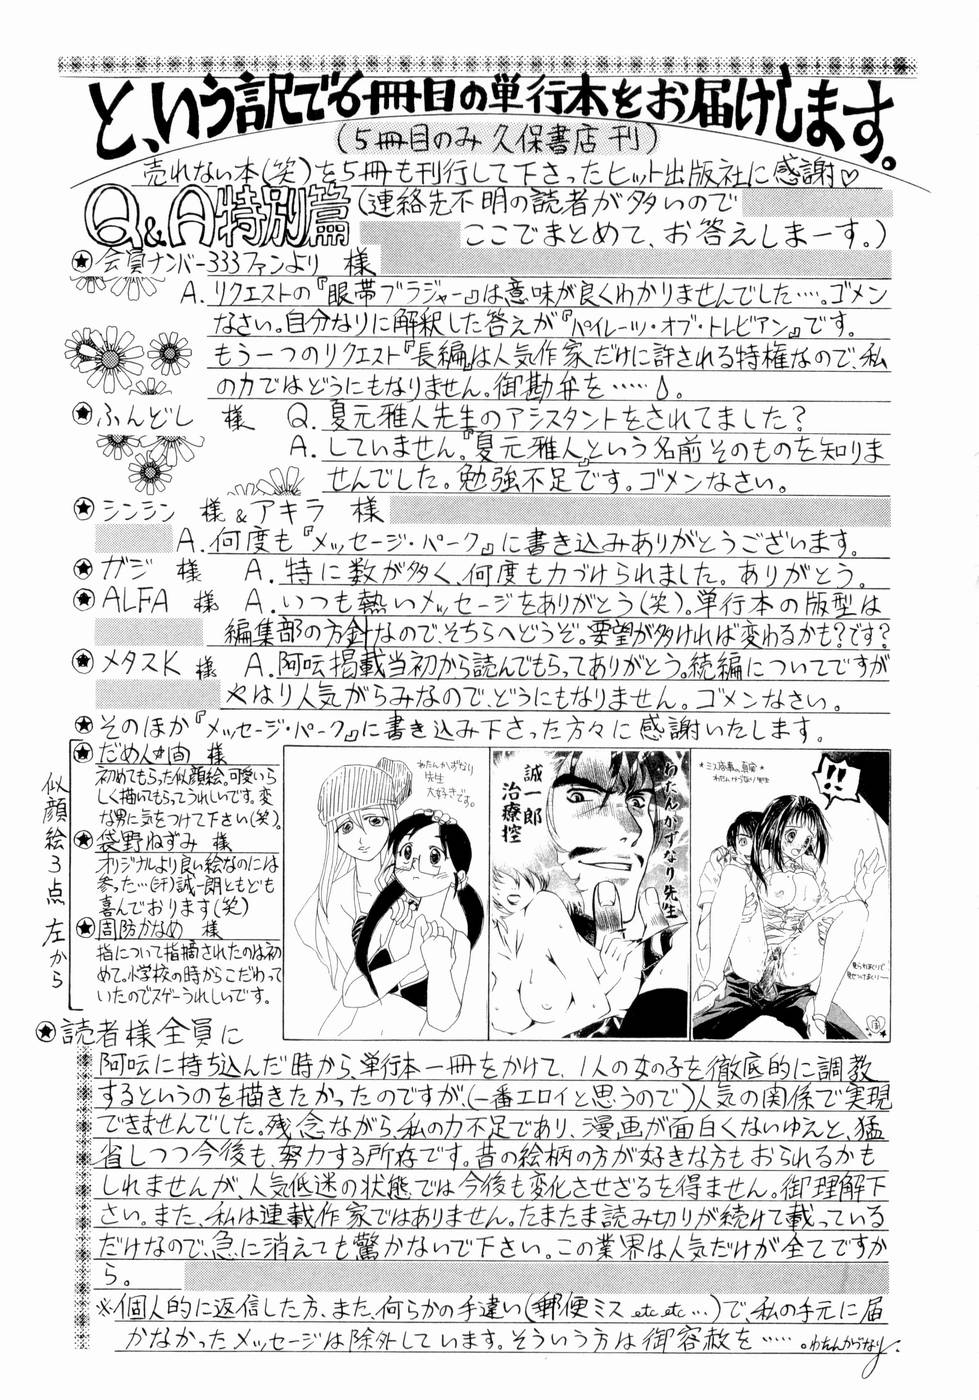 と、いう訳で6冊目の単行本をお届けします。
(5冊目のみ久保書店刊)
売れない本(笑)を5冊も刊行して下さったヒット出版社に感謝♡
Q&A特別篇(連絡先不明の読者が多いので
ここでまとめて、お答えしまーす。)
会員ナンバー333ファンより 様
A. リクエストの『眼帯ブラジャー』は意味が良くわかりませんでした…。ゴメン
なさい。自分なりに解釈した答えが『パイレーツ・オブ・トレビアン』です。
もう一つのリクエスト『長編』は人気作家だけに許される特権なので、私
の力ではどうにもなりません。御勘弁を……。
ふんどし 様 Q. 夏元雅人先生のアシスタントをされてました?
A. していません。『夏元雅人』という名前そのものを知りま
せんでした。勉強不足です。ゴメンなさい。
シンシン 様&アキラ 様
A. 何度も『メッセージ・パーク』に書き込みありがとうございます。
ガジ 様 A. 特に数が多く、何度も力づけられました。ありがとう。
ALFA 様 A. いつも熱いメッセージをありがとう(笑)。単行本の版型は
編集部の方針なので、そちらへどうぞ。要望が多ければ変わるかも?です?
メタスK 様 A. 阿吽掲載当初から読んでもらってありがとう。続編についてですが
やはり人気がらみなので、どうにもなりません。ゴメンなさい。
そのほか『メッセージ・パーク』に書き込み下さった方々に感謝いたします。
似顔絵3点 左から
だめ人間 様
初めてもらった似顔絵。可愛いら
しく描いてもらってうれしいです。変
な男に気をつけて下さい(笑)。
袋野ねずみ 様
オリジナルより良い絵なのには
参った…(汗)誠一朗ともども
喜んでおります(笑)
周防かなめ 様
指について指摘されたのは初
めて。小学校の時からこだわって
いたのでスゲーうれしいです。
わたんかずなり
先生
大好きです。
誠一郎
治療控
わたんかずなり先生
!!
読者様全員に
阿吽に持ち込んだ時から、単行本一冊をかけて、1人の女の子を徹底的に調教
するというのを描きたかったのですが、(一番エロイと思うので)人気の関係で実現
できませんでした。残念ながら、私の力不足であり、漫画が面白くないゆえんと、猛
省しつつ今後も、努力する所存です。昔の絵柄の方が好きな方もおられるかも
しれませんが、人気低迷の状態では今後も変化させざるを得ません。御理解下
さい。また、私は連載作家ではありません。たまたま読み切りが続けて載っている
だけなので、急に消えても驚かないで下さい。この業界は人気だけが全てですか
ら。
※個人的に返信した方、また、何らかの手違い(郵便ミス etc,etc…)で、私の手元に届
かなかったメッセージは除外しています。そういう方は御容赦を……。わたんかづなり.